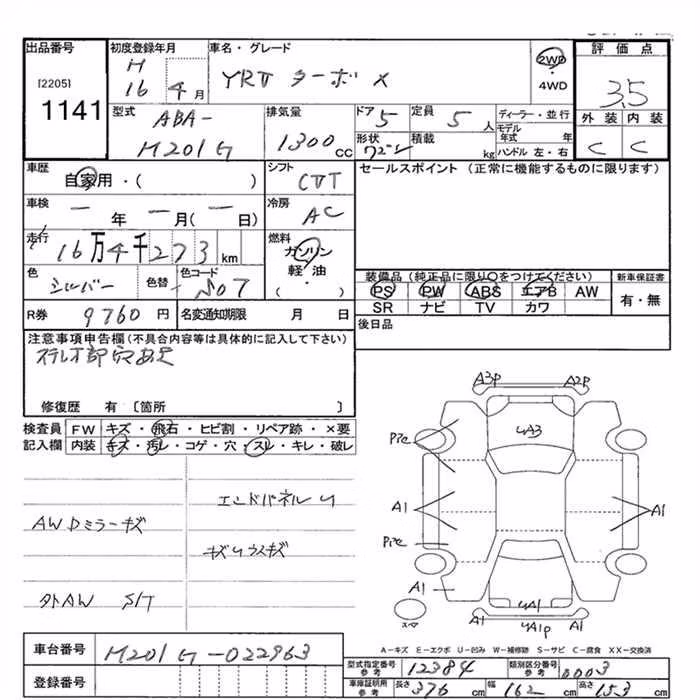 出品番号
[2205]
1141
初度登録年月
H
16 4月
車名・グレード
YRV ターボ X
2WD
・
4WD
評価点
3.5
外装 内装
C C
型式
ABA-
M201G
排気量
1300cc
ドア 5
定員 5人
形状 ワゴン
積載 kg
ディーラー・並行
モデル年式 年
ハンドル 左・右
車歴
自家用・( )
シフト
CVT
セールスポイント(正常に機能するものに限ります)
車検
ー年ー月(ー日)
冷房
AC
走行
16万4千273km
燃料
ガソリン
軽・油
( )
色
シルバー
色替
色コード
S07
装備品(純正品に限り○をつけてください)
PS PW ABS エアB AW
SR ナビ TV カワ
新車保証書
有・無
R券 9760円
名変通知期限 月 日
後日品
注意事項申告欄(不具合内容等は具体的に記入して下さい)
ステレオ部穴あき
修復歴 有〔箇所 〕
検査員
記入欄
FW キズ・飛石・ヒビ割・リペア跡・×要
内装 キズ・汚レ・コゲ・穴・スレ・キレ・破レ
エンドパネルU
AWDミラーキズ
キズUウスキズ
外AW S/T
A3P A2P
UA3
A1
A1
A1
A1
UA1
UA1P
スペ
A-キズ E-エクボ U-凹み W-補修跡 S-サビ C-腐食 XX-交換済
車台番号
M201G-022963
登録番号
型式指定番号
参考
12384
類別区分番号
参考
0003
車庫証明用
参考
長さ 376cm 幅 162cm 高さ 153cm